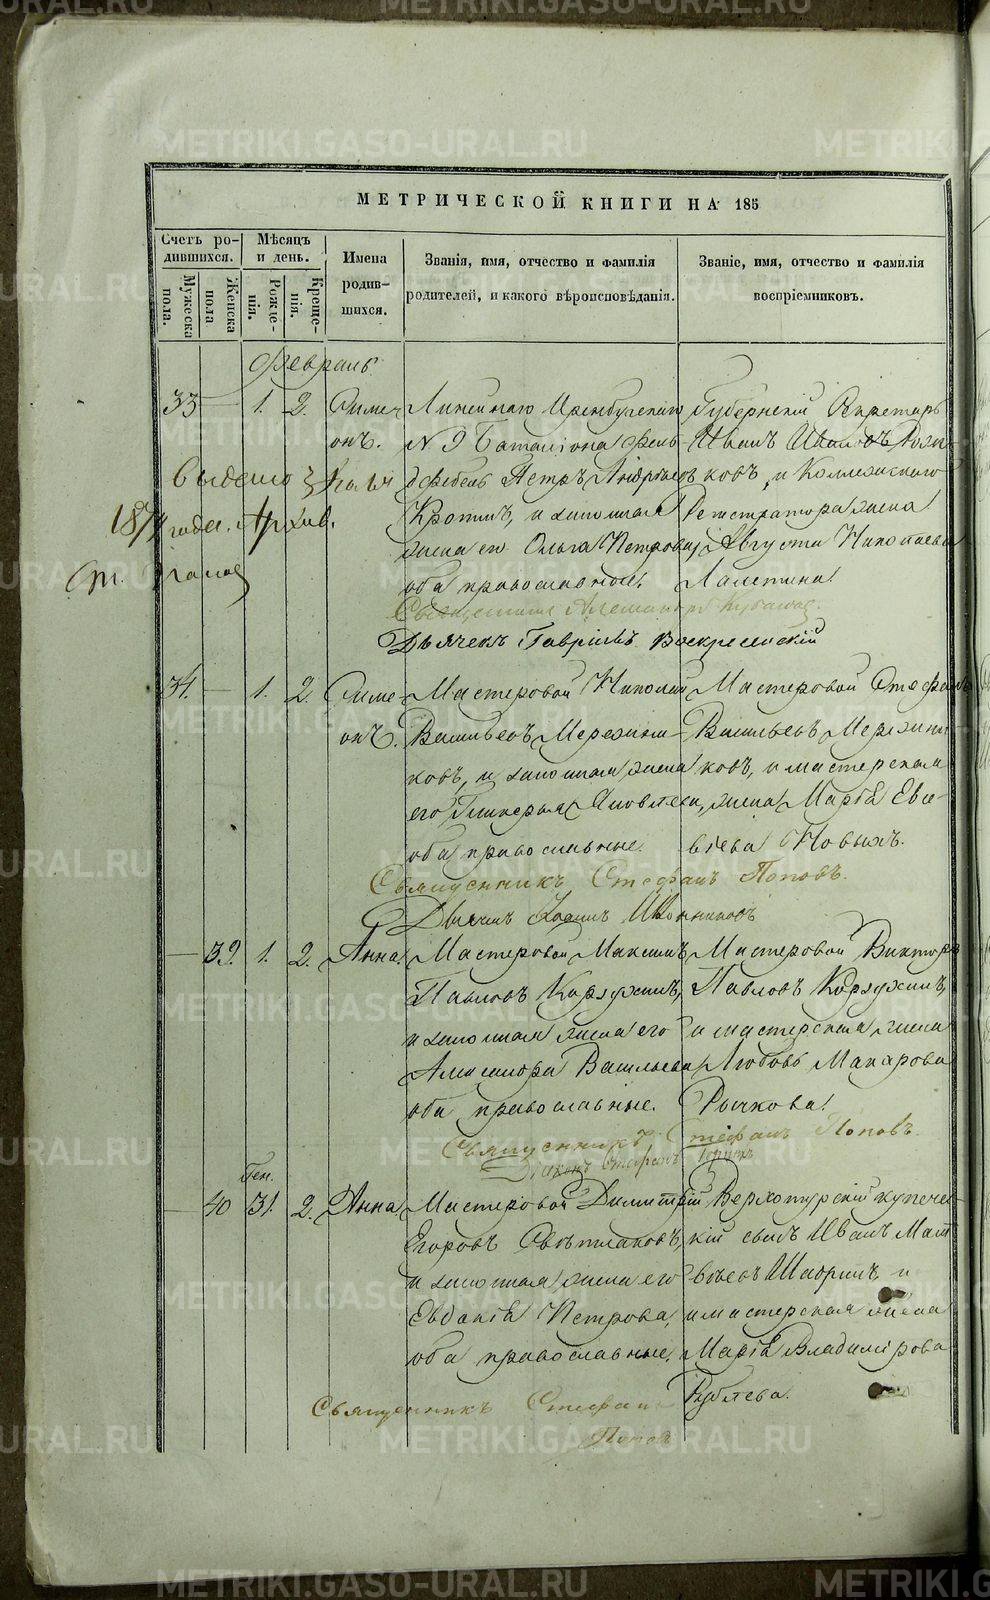 МЕТРИЧЕСКОЙ КНИГИ НА 185
Счетъ ро-
дившихся.
Мужеска
пола.
Женска
пола
Мѣсяцъ
и день.
Рожде-
нія.
Креще-
нія.
Имена
родив-
шихся.
Званія, имя, отчество и фамилія
родителей, и какого вѣроисповѣданія.
Званіе, имя, отчество и фамилія
воспріемниковъ.
Февраль
33 — 1. 2. Симе-
онъ.
Линейнаго Оренбургскаго
N 9 Баталіона Фель-
дфебель Петръ Андрѣевъ
Кротинъ, и законная
жена его Ольга Петрова,
оба православные.
Губернскій Секретарь
Иванъ Ивановъ
ковъ, и Коллежскаго
Регистратора жена
Августа Николаева
Лапетина.
1874 года. Архив.
Священникъ Александръ
Дьячекъ Гавріилъ Воскресенскій
34. — 1. 2. Симе-
онъ.
Мастеровой Николай
Васильевъ Мережни-
ковъ, и законная жена
его Гликерья Яковлева,
оба православные.
Мастеровой Стефанъ
Васильевъ Мережни-
ковъ, и мастерская
жена Марія Евсе-
віева Новыхъ.
Священникъ Стефанъ Поповъ.
— 39. 1. 2. Анна.
Мастеровой Максимъ
Павловъ Корзухинъ,
и законная жена его
Александра Васильева
оба православные.
Мастеровой Викторъ
Павловъ Корзухинъ,
и мастерская жена
Любовь Макарова
Рычкова.
Священникъ Стефанъ Поповъ.
Діаконъ Стефанъ
Ген.
— 40 31. 2. Анна.
Мастеровой Димитрій
Егоровъ Свѣтлаковъ,
и законная жена его
Евдокія Петрова,
оба православные.
Верхотурскій купече-
скій сынъ Иванъ Мат
вѣевъ Шавринъ и
и мастерская жена
Марія Владимірова
Рублева.
Священникъ Стефанъ
Поповъ
METRIKI.GASO-URAL.RU